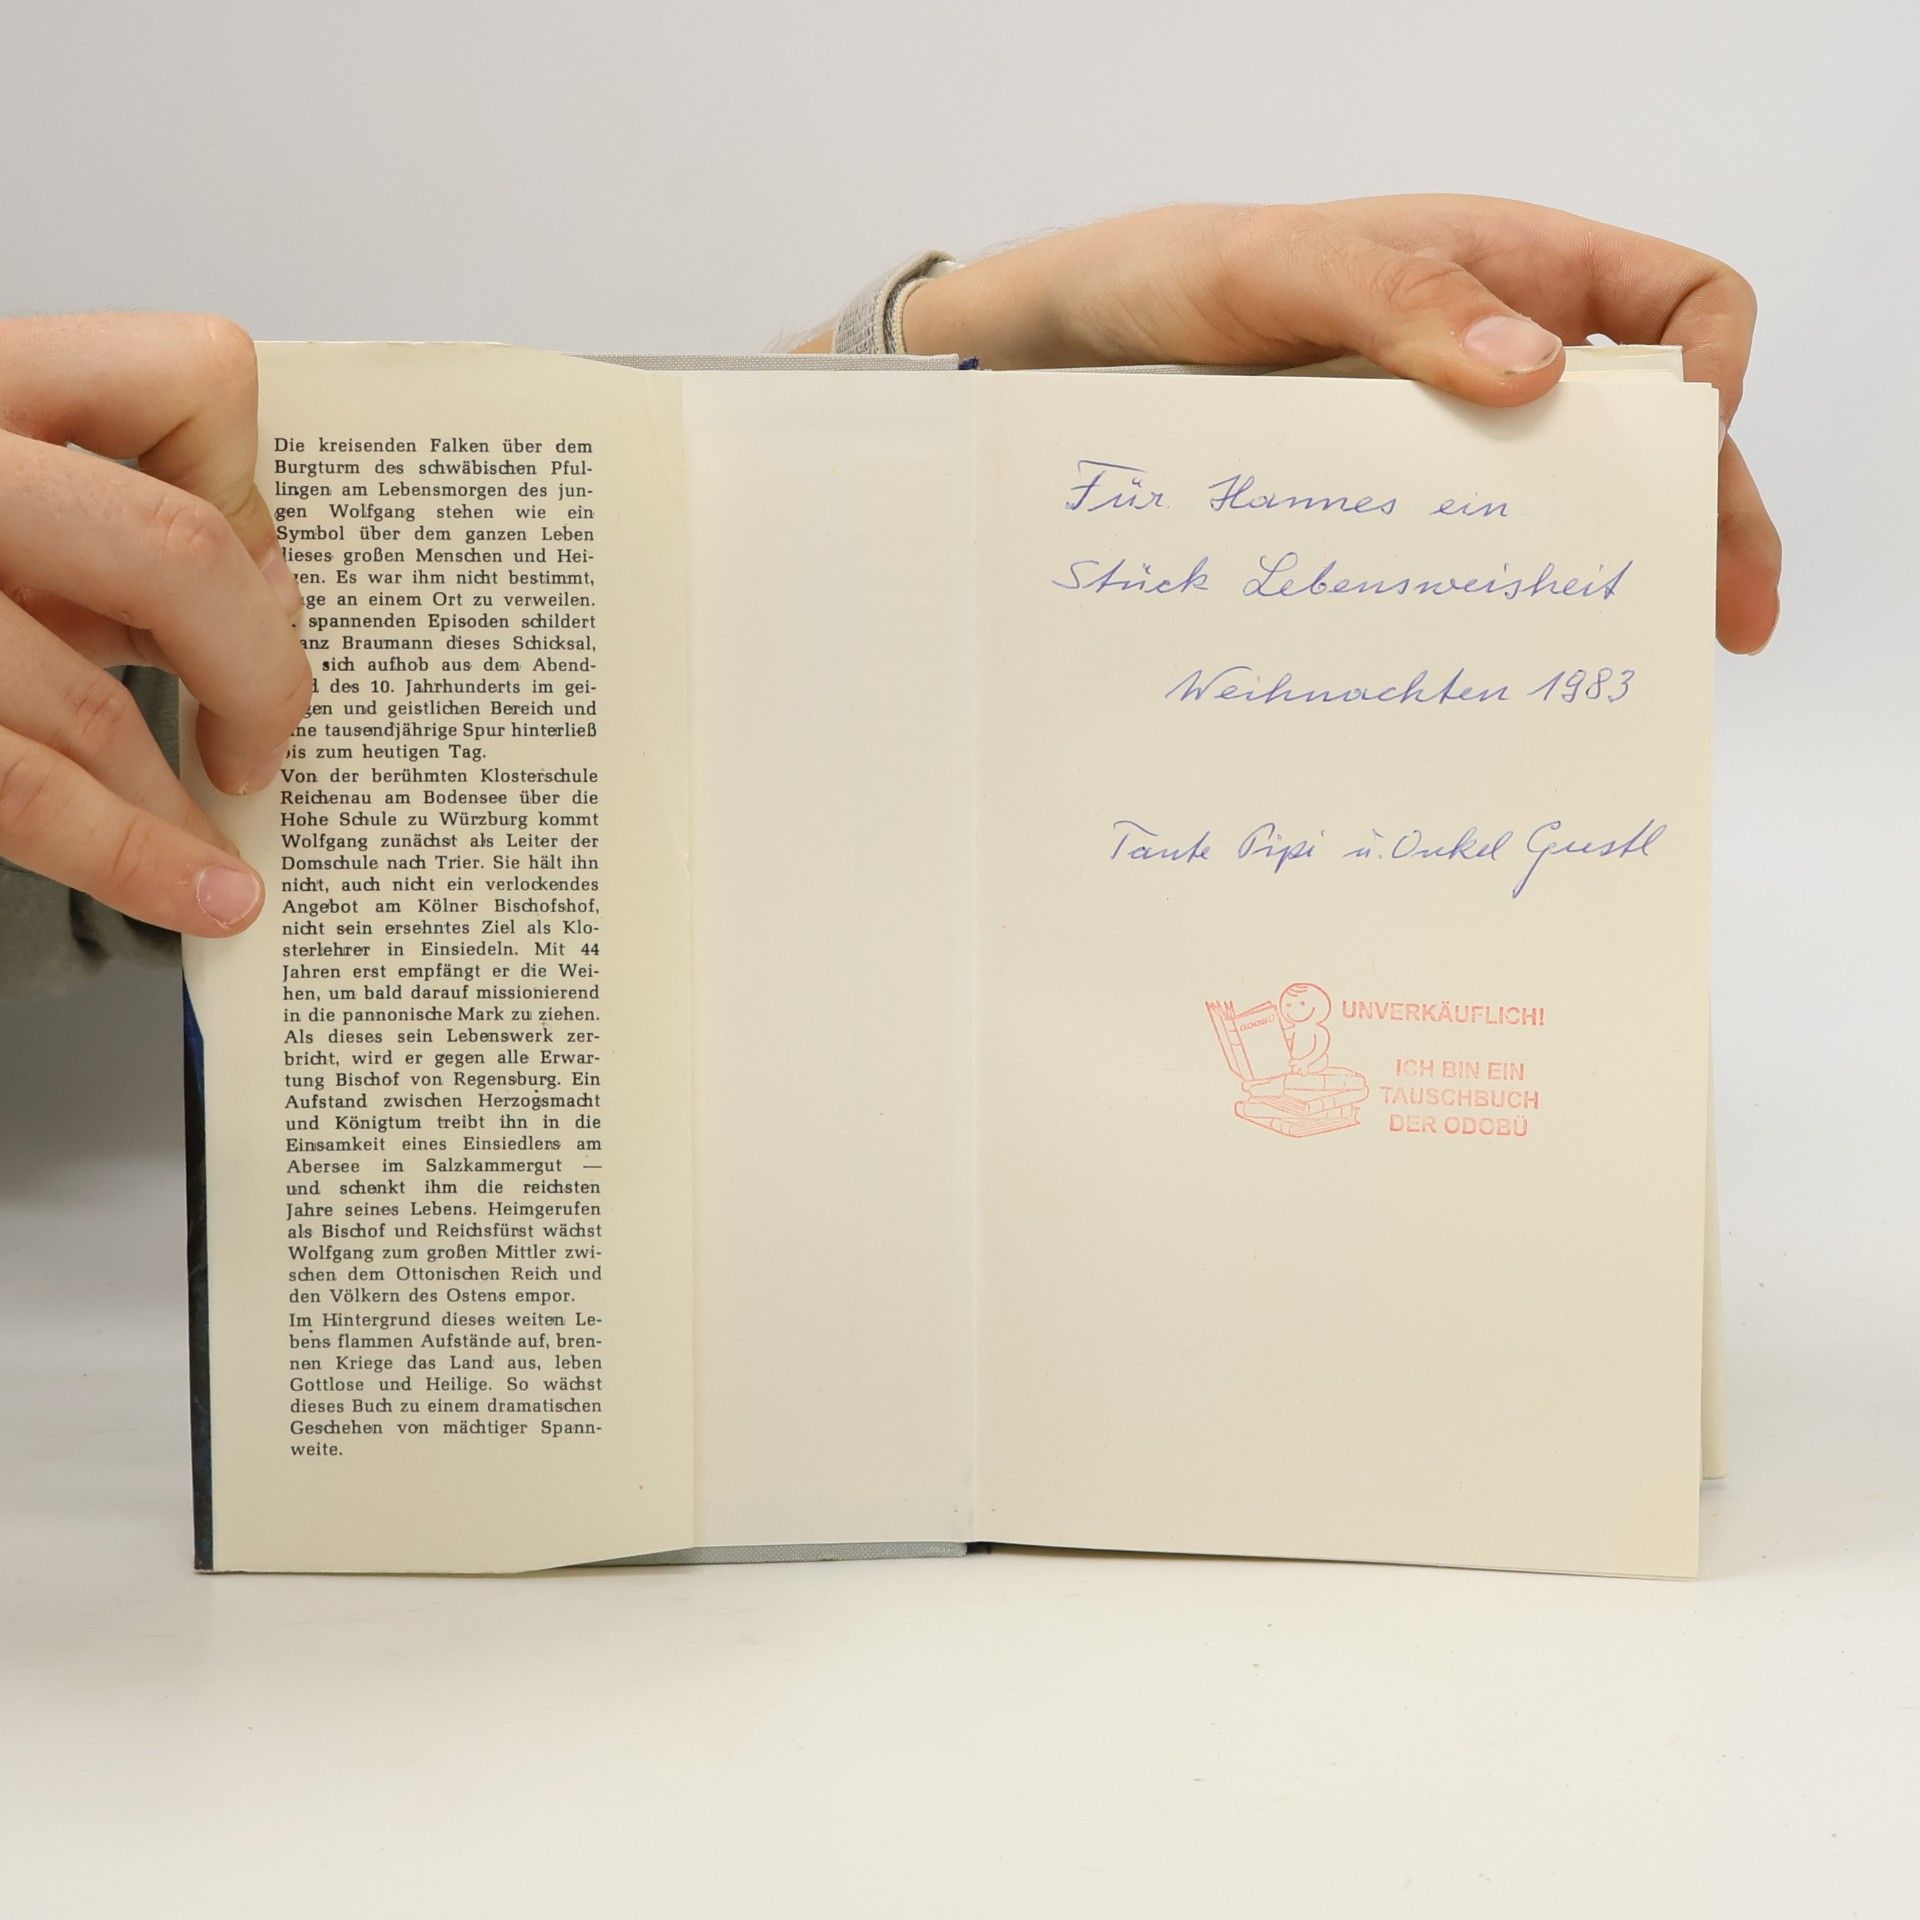 Die kreisenden Falken über dem
Burgturm des schwäbischen Pful-
lingen am Lebensmorgen des jun-
gen Wolfgang stehen wie ein
Symbol über dem ganzen Leben
dieses großen Menschen und Hei-
gen. Es war ihm nicht bestimmt,
ge an einem Ort zu verweilen.
spannenden Episoden schildert
anz Braumann dieses Schicksal,
sich aufhob aus dem Abend-
d des 10. Jahrhunderts im gei-
gen und geistlichen Bereich und
ne tausendjährige Spur hinterließ
bis zum heutigen Tag.
Von der berühmten Klosterschule
Reichenau am Bodensee über die
Hohe Schule zu Würzburg kommt
Wolfgang zunächst als Leiter der
Domschule nach Trier. Sie hält ihn
nicht, auch nicht ein verlockendes
Angebot am Kölner Bischofshof,
nicht sein ersehntes Ziel als Klo-
sterlehrer in Einsiedeln. Mit 44
Jahren erst empfängt er die Wei-
hen, um bald darauf missionierend
in die pannonische Mark zu ziehen.
Als dieses sein Lebenswerk zer-
bricht, wird er gegen alle Erwar-
tung Bischof von Regensburg. Ein
Aufstand zwischen Herzogsmacht
und Königtum treibt ihn in die
Einsamkeit eines Einsiedlers am
Abersee im Salzkammergut —
und schenkt ihm die reichsten
Jahre seines Lebens. Heimgerufen
als Bischof und Reichsfürst wächst
Wolfgang zum großen Mittler zwi-
schen dem Ottonischen Reich und
den Völkern des Ostens empor.
Im Hintergrund dieses weiten Le-
bens flammen Aufstände auf, bren-
nen Kriege das Land aus, leben
Gottlose und Heilige. So wächst
dieses Buch zu einem dramatischen
Geschehen von mächtiger Spann-
weite.
Für Hannes ein
Stück Lebensweisheit
Weihnachten 1983
Tante Pipi u. Onkel Gustl
ODOBÜ
UNVERKÄUFLICH!
ICH BIN EIN
TAUSCHBUCH
DER ODOBÜ